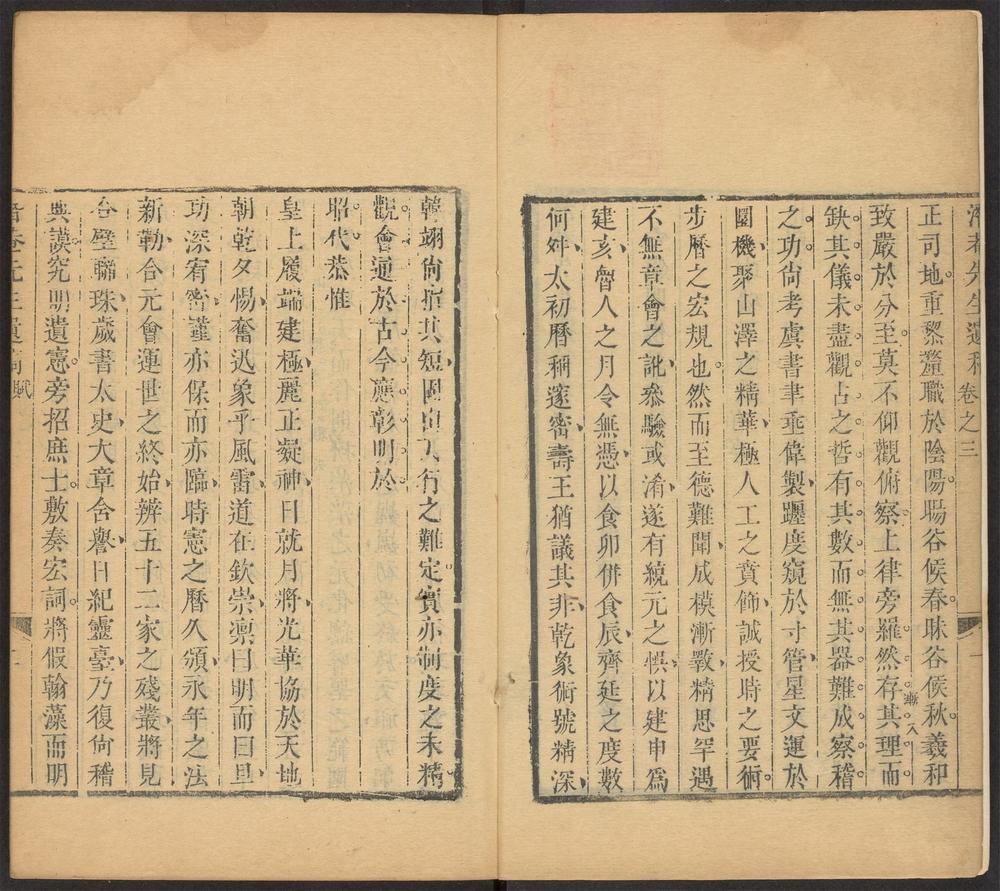 先生遺稿 卷之三
正司地重黎釐職於陰陽暘谷候春昧谷候秋羲和
致嚴於分至莫不仰觀俯察上律旁羅然存其理而
缺其儀未盡觀占之哲有其數而無其器難成察稽
之功尙考虞書聿垂偉製躔度窺於寸管星文運於
圜機聚山澤之精華極人工之賁飾誠授時之要術
步曆之宏規也然而至德難聞成模漸斁精思罕遇
不無章會之訛參驗或淆遂有統元之悞以建申爲
建亥魯人之月令無憑以食卯併食辰齊廷之度數
何舛太初曆稱邃密壽王猶議其非乾象術號精深
韓翊尙指其短固由天行之難定實亦制度之未精
觀會通於古今應彰明於
昭代恭惟
皇上履端建極麗正凝神日就月將光華協於天地
朝乾夕惕奮迅象乎風雷道在欽崇凛曰明而曰旦
功深宥密謹亦保而亦臨時憲之曆久頒永年之法
新勒合元會運世之終始辨五十二家之殘叢將見
合璧聯珠歲書太史大章含譽日紀靈臺乃復尙稽
典謨究明遺憲旁招庶士敷奏宏詞將假翰藻而明
卷先生遺稿 賦